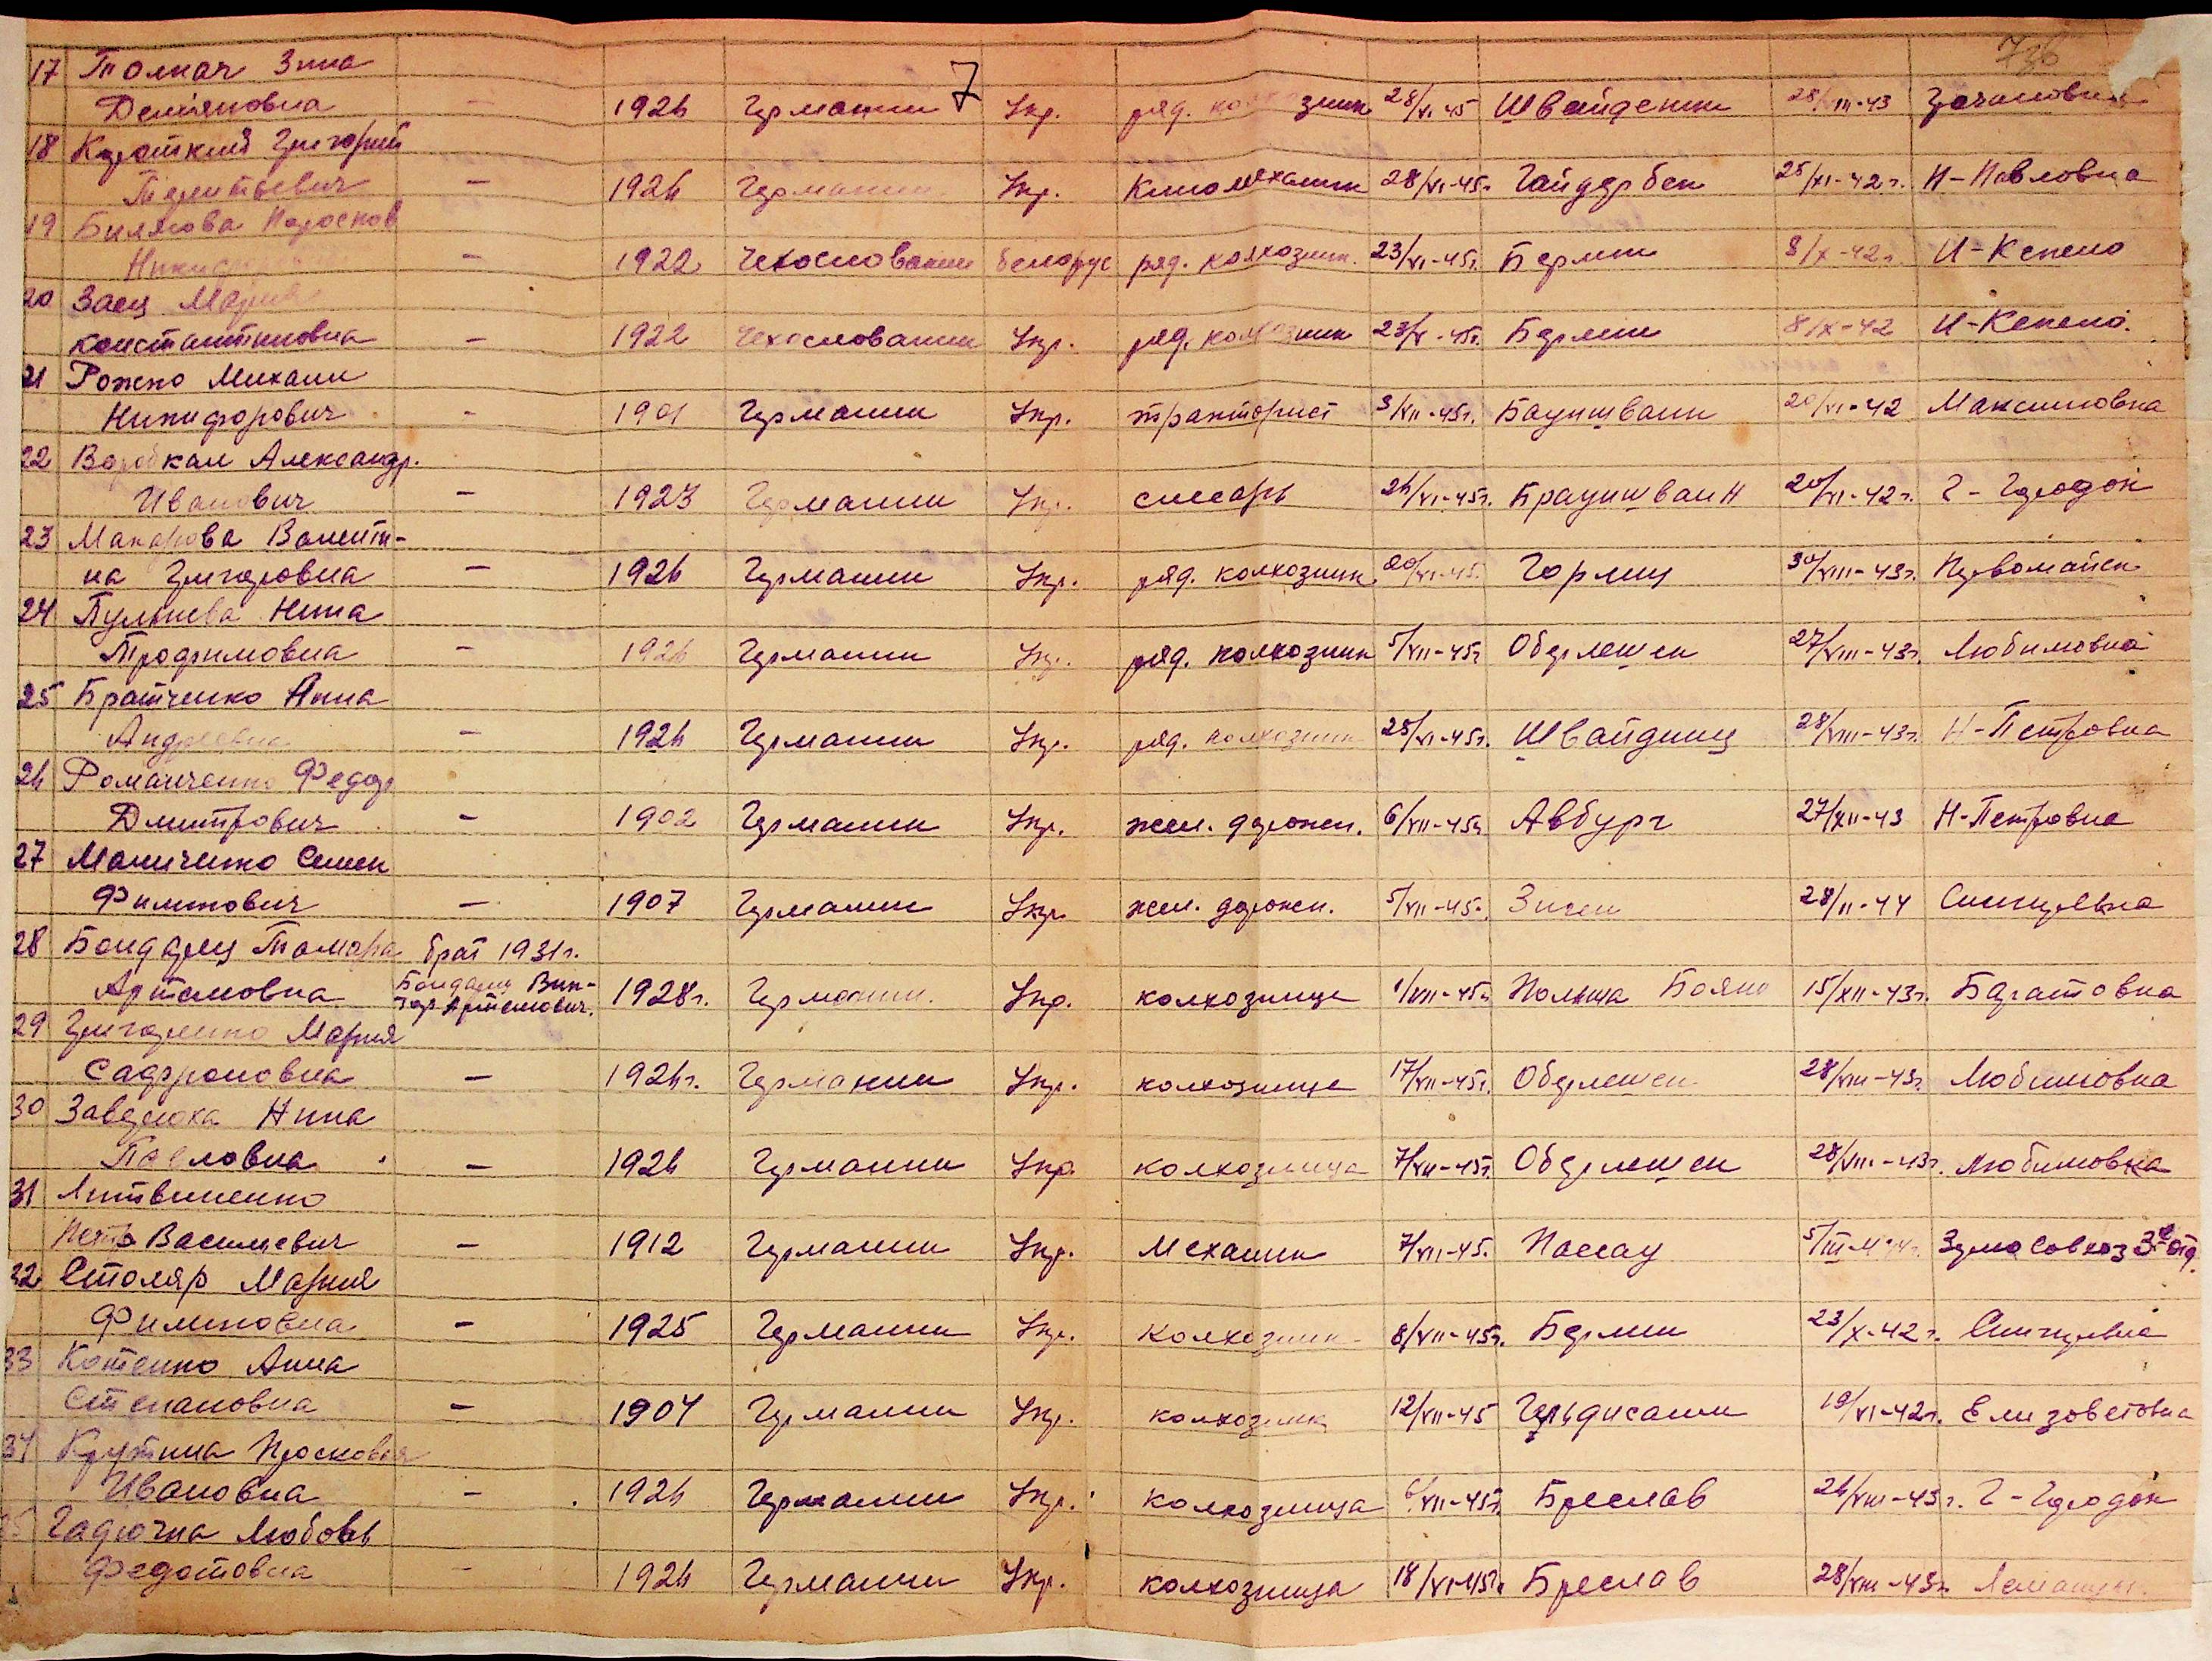 7
736
17 Толкач Зина
Демьяновна - 1926 Германии Укр. ряд. колхозник 28/VI 45 Швайдениц 28/VIII-43
18 Кроткий Григорий
Терентьевич - 1926 Германии Укр. Киномеханик 28/VI-45г. Гайдербен 25/XI-42г. Н-Павловка
19 Билясова Прасков
- 1922 Чехословакии белорус ряд. колхозник. 23/VI-45г. Берлин 8/X-42г. И-Кепено
20 Заец Мария
Константиновна - 1922 Чехословакии Укр. ряд. колхозник 23/V-45г. Берлин 8/X-42 И-Кепено.
21 Рожко Михаил
Никифорович - 1901 Германии Укр. тракторист 3/VII-45г. Бауншваин 20/VI-42 Максимовка
22 Александр.
Иванович - 1923 Германии Укр. слесарь 26/VI-45г. Брауншваин 20/VI-42г. Г-Городок
23 Макарова Валенти-
на Григоровна - 1926 Германии Укр. ряд. колхозник 20/VI-45. Горлиц 30/VIII-43г. Первомайск
24 Пульнева Нина
Трофимовна - 1926 Германии Укр. ряд. колхозник 5/VII-45г Оберлешен 27/VIII-43г. Любимовка
25 Братченко Анна
Андреевна - 1926 Германии Укр. ряд. колхозник 25/VI-45г. Швайдниц 28/VIII-43г. Н-Петровка
26 Романченко Федор
Дмитрович - 1902 Германии Укр. жел. дорожн. 6/VII-45г Авбург 27/XII-43 Н-Петровка
27 Маниченко Семен
Филипович - 1907 Германии Укр. жел. дорожн. 5/VII-45г. Зиген 28/II-44
28 Бондарец Тамара брат 1931г.
Артемовна Бондарец Вик-
тор Артемович. 1928г. Германии. Укр. колхознице 1/VIII-45г Польша Бояно 15/XII-43г. Баратовка
29 Григоренко Мария
Сафроновна - 1926г. Германии Укр. колхознице 17/VII-45г. Оберлешен 28/VIII-43г. Любимовка
30 Заверюха Нина
Павловна - 1926 Германии Укр. колхозница 7/VII-45г. Оберлешен 28/VIII-43г. Любимовка
31 Литвиненко
Петр Василиевич - 1912 Германии Укр. Механик 7/VII-45. Пассау 5/III-44г. Зерносовхоз 3е отд.
32 Столяр Мария
Филиповна - 1925 Германии Укр. Колхозник 8/VII-45г. Берлин 23/X-42г.
33 Котенко Анна
Степановна - 1904 Германии Укр. колхозник 12/VII-45 Гельдисаим 19/VI-42г. Елизоветовка
34 Крутина Просковья
Ивановна - 1926 Германии Укр. колхозница 6/VII-45г. Бреслав 26/VIII-43г. Г-Городок
35 Гадючка Любовь
Федотовна - 1926 Германии Укр. колхозница 18/VI-45г. Бреслав 28/VIII-43г.